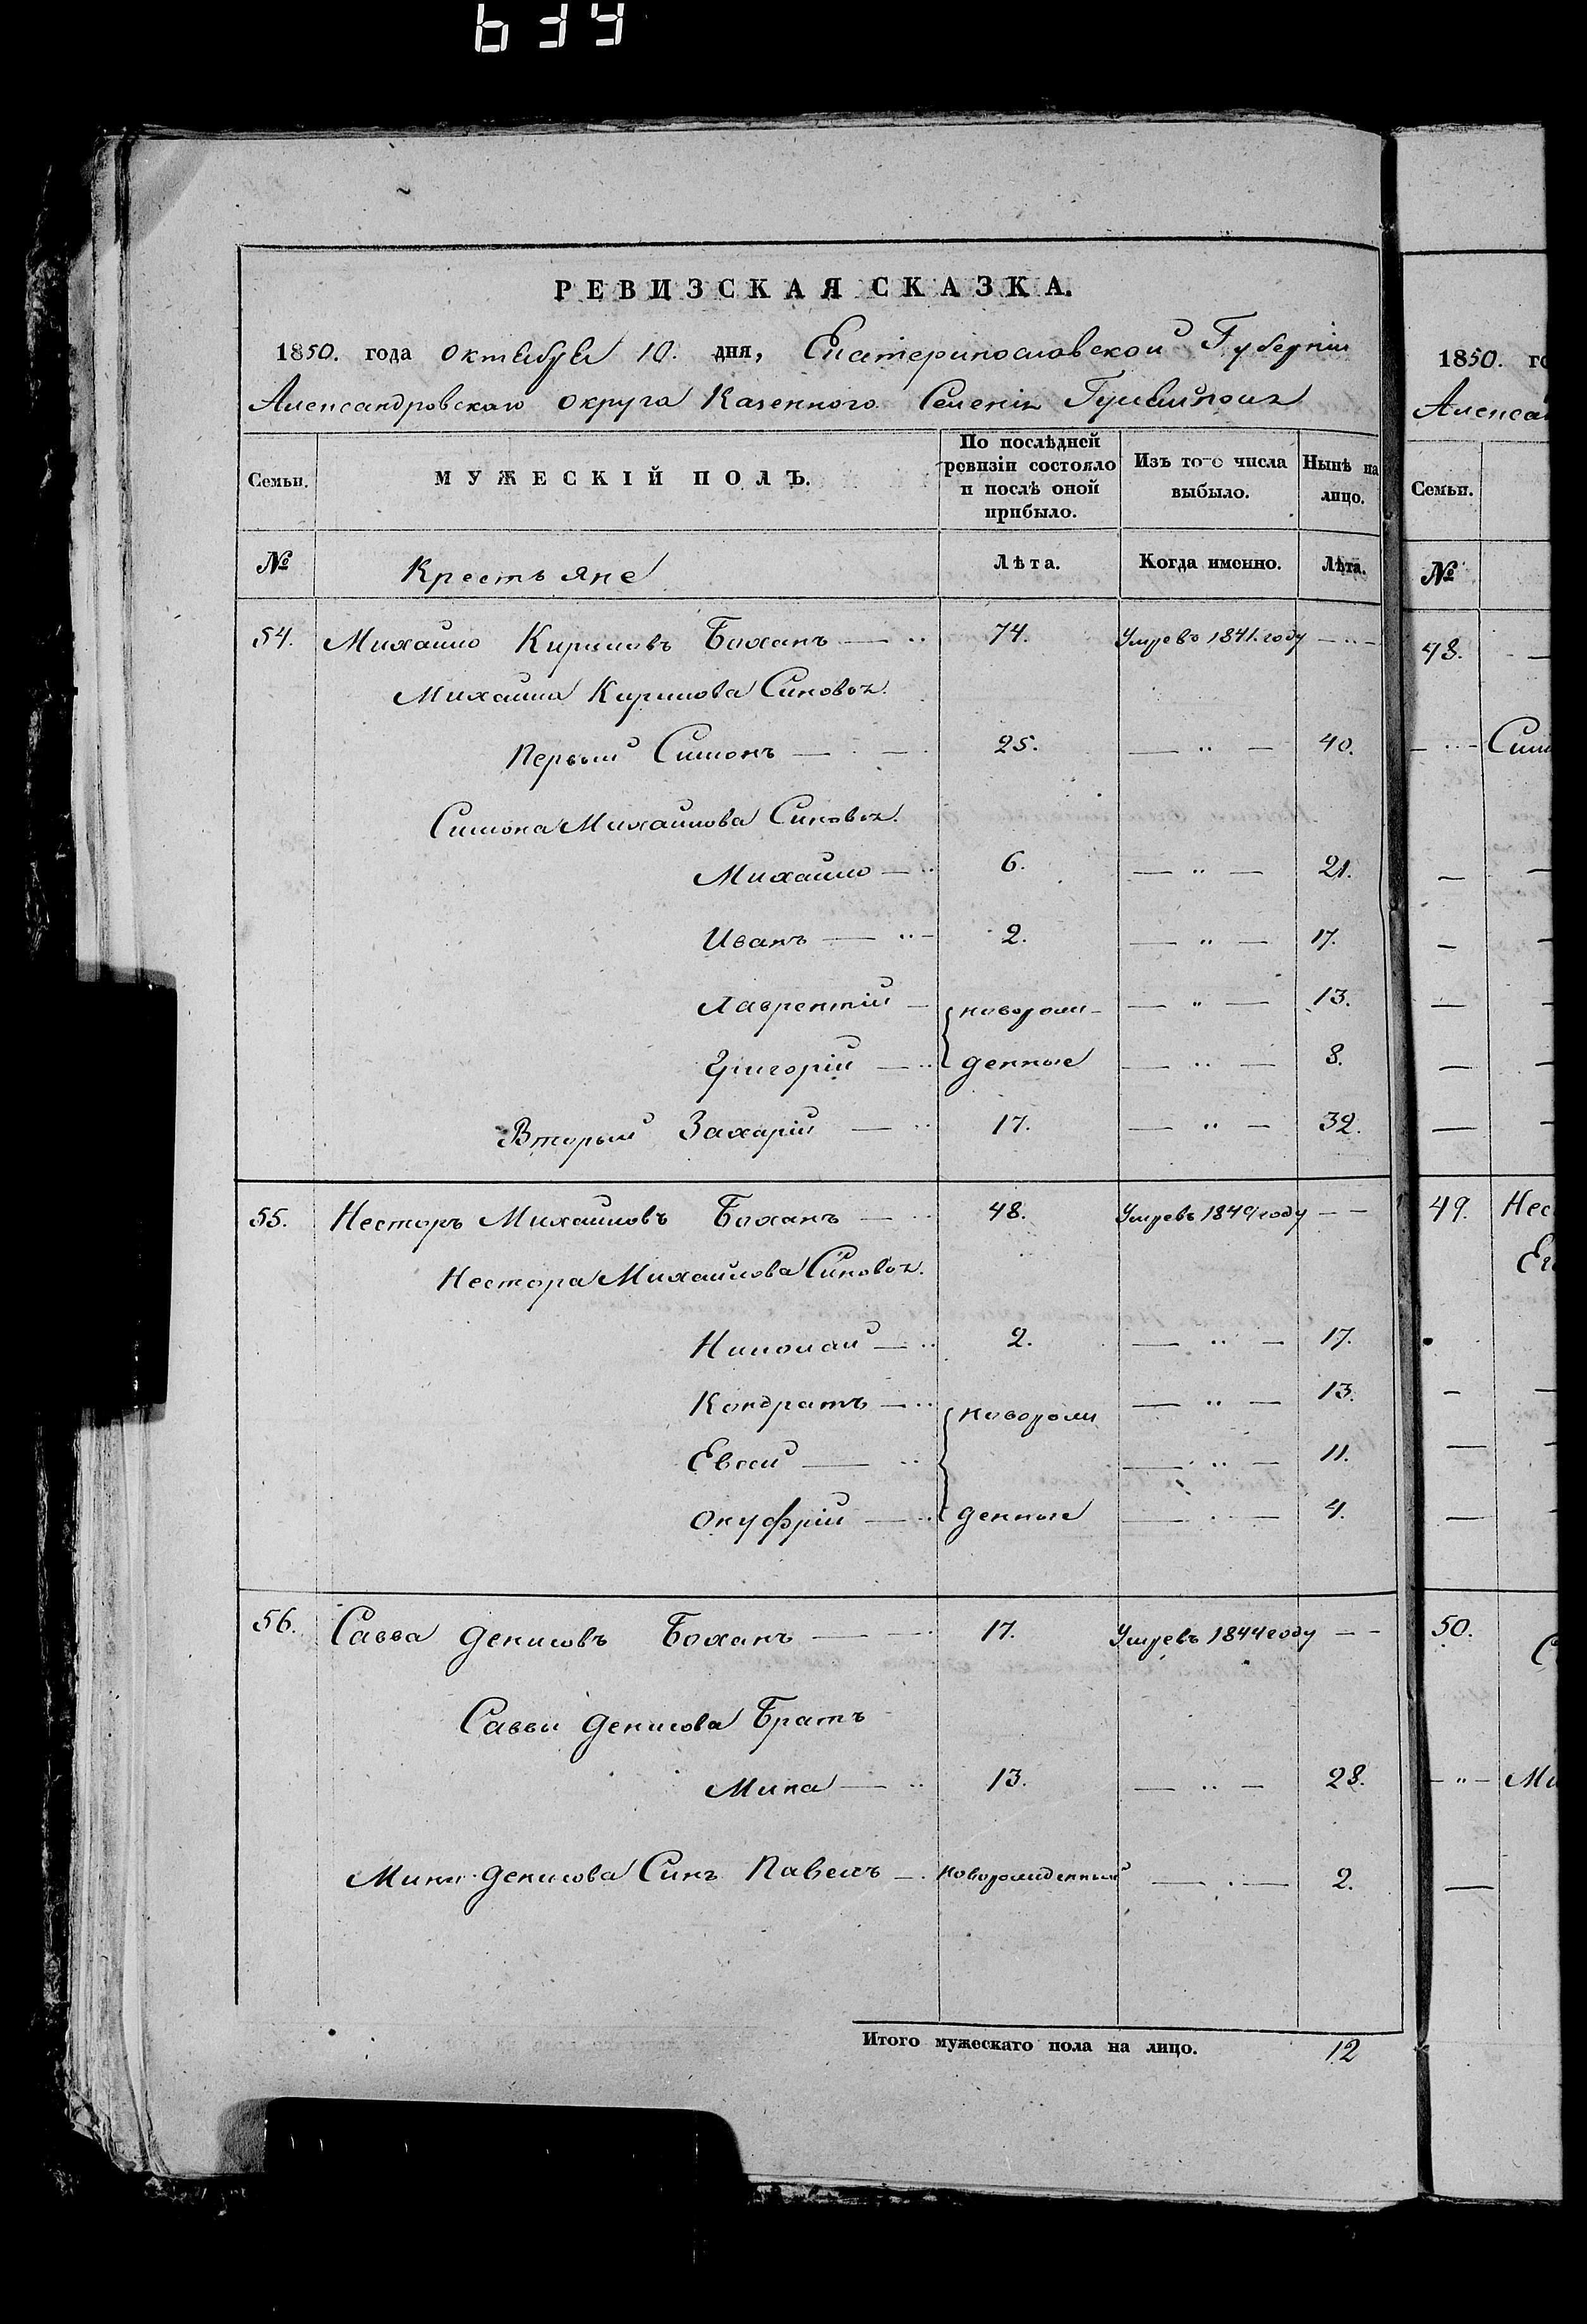 634
РЕВИЗСКАЯ СКАЗКА.
1850. года октября 10. дня, Екатеринославской Губерніи
Александровскаго округа Казенного Селенія
Семьи. МУЖЕСКІЙ ПОЛЪ. По послѣдней ревизіи состояло и послѣ оной прибыло. Изъ того числа выбыло. Нынѣ на лицо.
№ Крестьяне Лѣта. Когда именно. Лѣта.
54. Михайло Кириловъ Боханъ 74. Умревъ 1841. году
Михайла Кирилова Синовья
Первый Симонъ 25. 40.
Симона Михайлова Синовья
Михайло 6. 21.
Иванъ 2. 17.
Лаврентій новорож- 13.
Григорій денные 8.
Вторый Захарій 17. 32.
55. Несторъ Михайловъ Боханъ 48. Умревъ году
Нестора Михайлова Синовья
Николай 2. 17.
Кондратъ новорож 13.
Евсей 11.
Онуфрій денные 4.
56. Савва Денисовъ Боханъ 17. Умревъ 1844 году
Саввы Денисова Братъ
Мина 13. 28.
Мины Денисова Синъ Павелъ новорожденный 2.
Итого мужескаго пола на лицо. 12
1850. го
Алексан
Семьи.
№
48.
Сим
49. Нес
Ег
50.
С
Ми